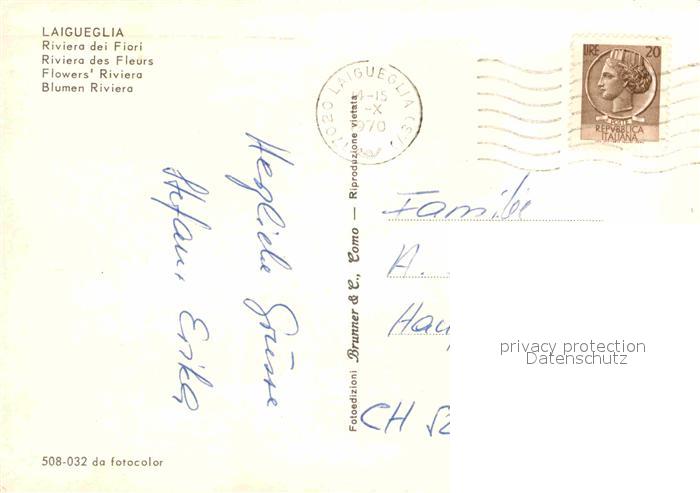 LAIGUEGLIA
Riviera dei Fiori
Riviera des Fleurs
Flowers' Riviera
Blumen Riviera
17020 LAIGUEGLIA (SV)
-15
-X
1970
LIRE 20
POSTE
REPVBBLICA
ITALIANA
Herzliche Grüsse
Stefan. Erika
Fotoedizioni Brunner & C., Como — Riproduzione vietata
Familie
A.
CH
privacy protection
Datenschutz
508-032 da fotocolor